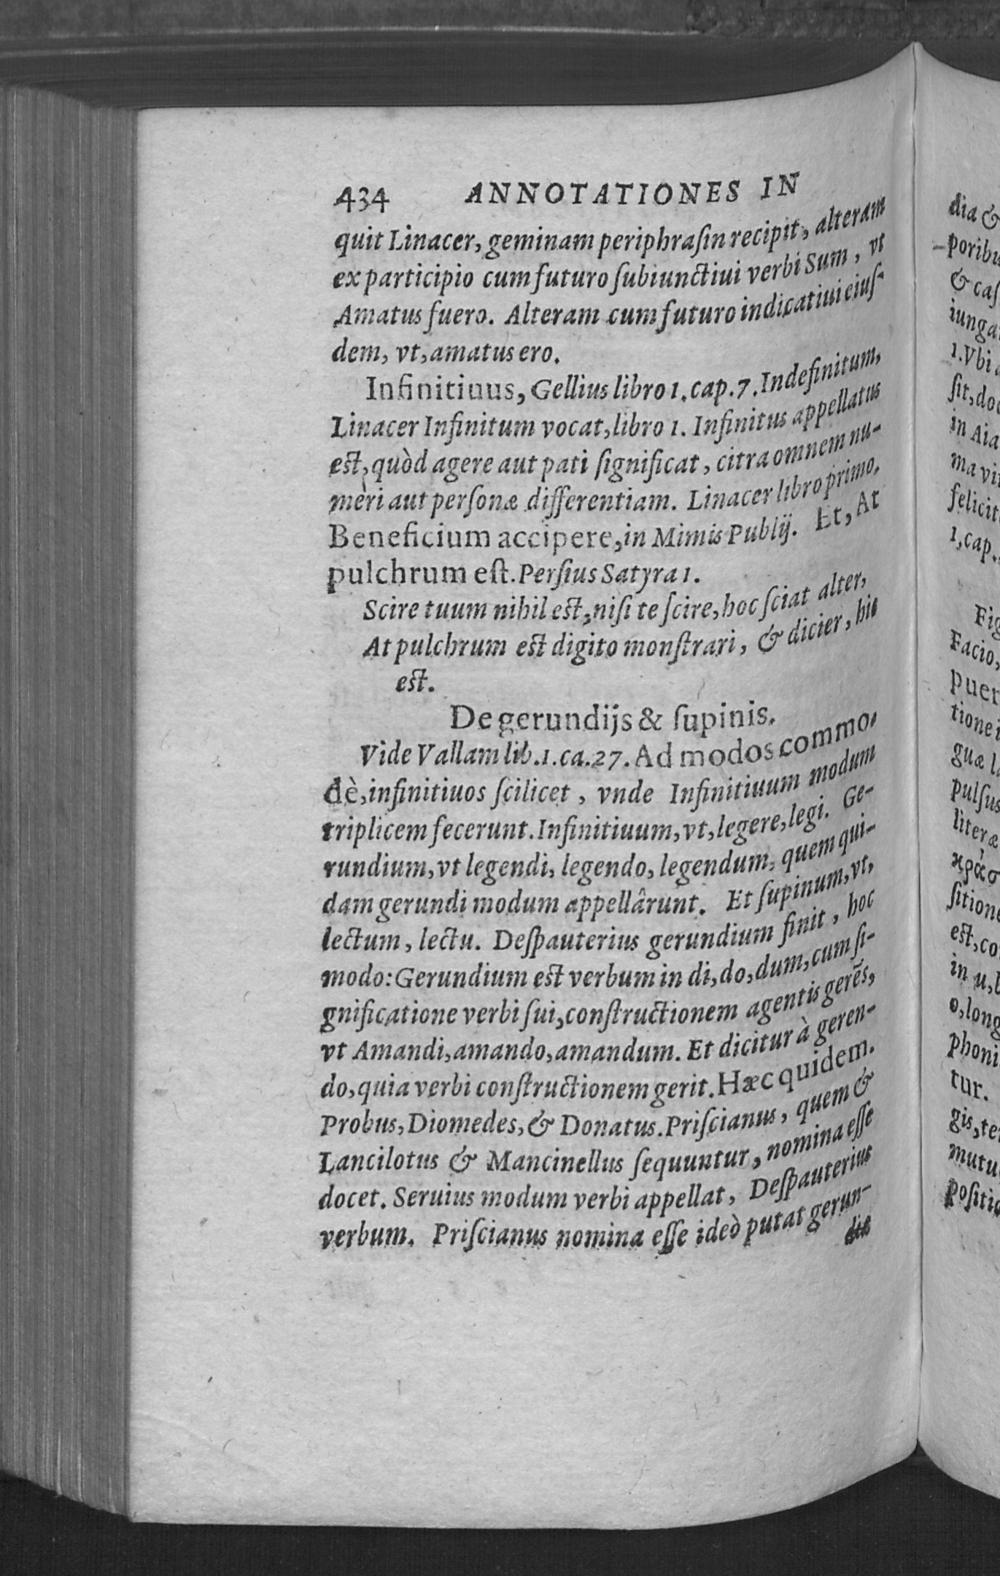 434 ANNOTATIONES IN
quit Linacer, geminam periphraſin recipit, alteram
ex participio cum futuro ſubiunctiui verbi Sum, vt
Amatus fuero. Alteram cum futuro indicatiui eiuſ-
dem, vt, amatus ero.
Infinitiuus, Gellius libro 1. cap. 7. Indefinitum,
Linacer Infinitum vocat, libro 1. Infinitus appellatus
eſt, quòd agere aut pati ſignificat, citra omnem nu-
meri aut perſonæ differentiam. Linacer libro primo,
Beneficium accipere, in Mimis Publij. Et, At
pulchrum eſt. Perſius Satyra 1.
Scire tuum nihil eſt, niſi te ſcire, hoc ſciat alter,
At pulchrum eſt digito monſtrari, & dicier, hic
eſt.
De gerundijs & ſupinis.
Vide Vallam lib. 1. ca. 27. Ad modos commo-
dè, infinitiuos ſcilicet, vnde Infinitiuum modum
triplicem fecerunt. Infinitiuum, vt, legere, legi. Ge-
rundium, vt legendi, legendo, legendum, quem qui-
dam gerundi modum appellârunt. Et ſupinum, vt,
lectum, lectu. Deſpauterius gerundium finit, hoc
modo: Gerundium eſt verbum in di, do, dum, cum ſi-
gnificatione verbi ſui, conſtructionem agentis gerẽs,
vt Amandi, amando, amandum. Et dicitur à geren-
do, quia verbi conſtructionem gerit. Hæc quidem.
Probus, Diomedes, & Donatus. Priſcianus, quem &
Lancilotus & Mancinellus ſequuntur, nomina eſſe
docet. Seruius modum verbi appellat, Deſpauterius
verbum. Priſcianus nomina eſſe ideò putat gerun-
dia
dia &
poribu
& caſ
iunga
1. Vbi
ſit, doc
in Aia
ma vi
felicit
1, cap.
Fig
Facio,
puer
tione i
guæ l
pulſus
literæ
ſitione
eſt, co
in u, l
o, long
phoni
tur.
gis, te
mutu
poſitio